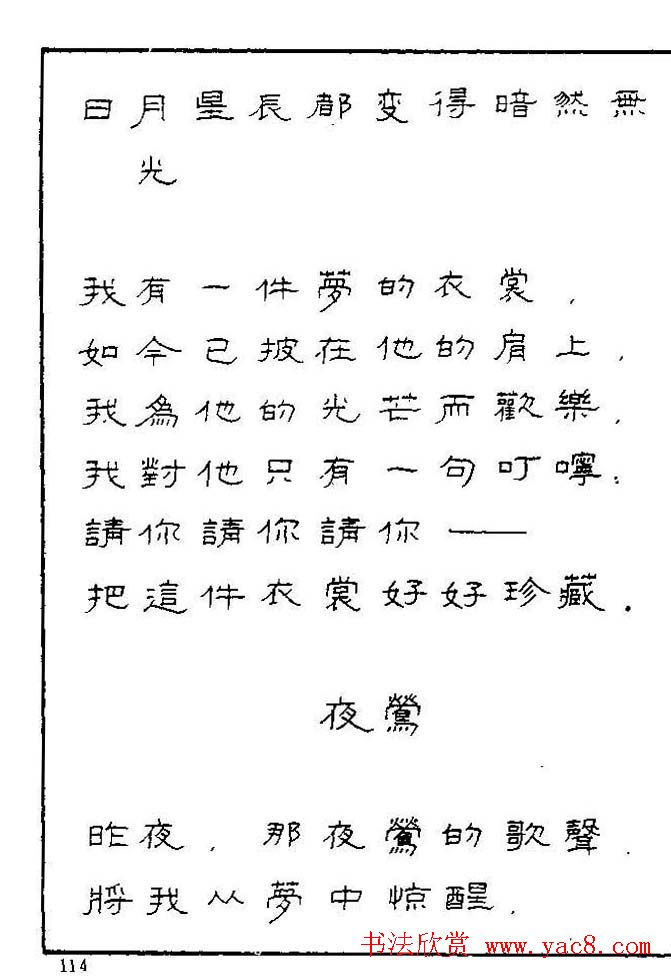 日月星辰都变得暗然無
光
我有一件夢的衣裳，
如今已披在他的肩上，
我為他的光芒而歡樂，
我對他只有一句叮嚀：
請你請你請你——
把這件衣裳好好珍藏．
夜鶯
昨夜，那夜鶯的歌聲，
將我从夢中惊醒，
书法欣赏 www.yac8.com
114